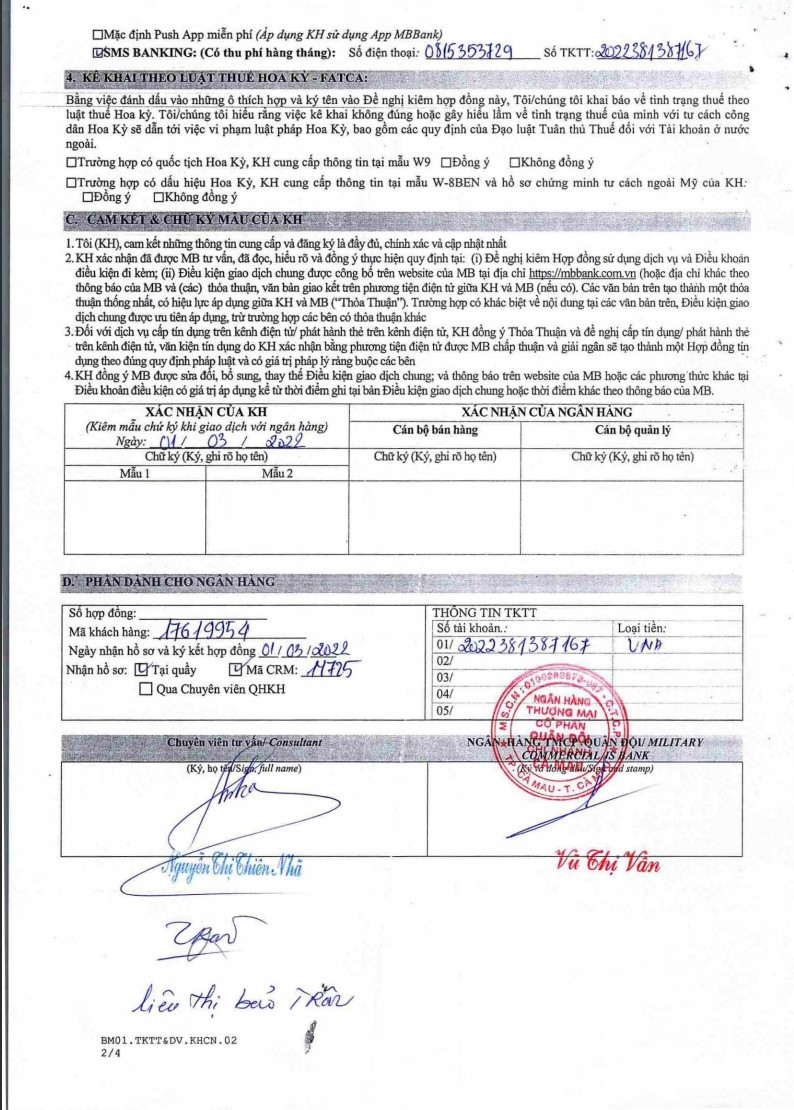 ☐Mặc định Push App miễn phí (Áp dụng KH sử dụng App MBBank)
☑SMS BANKING: (Có thu phí hàng tháng): Số điện thoại: 0815353729 Số TKTT: 2022381387167
4. KÊ KHAI THEO LUẬT THUẾ HOA KỲ - FATCA:
Bằng việc đánh dấu vào những ô thích hợp và ký tên vào Đề nghị kiêm hợp đồng này, Tôi/chúng tôi khai báo về tình trạng thuế theo
luật thuế Hoa kỳ. Tôi/chúng tôi hiểu rằng việc kê khai không đúng hoặc gây hiểu lầm về tình trạng thuế của mình với tư cách công
dân Hoa Kỳ sẽ dẫn tới việc vi phạm luật pháp Hoa Kỳ, bao gồm các quy định của Đạo luật Tuân thủ Thuế đối với Tài khoản ở nước
ngoài.
☐Trường hợp có quốc tịch Hoa Kỳ, KH cung cấp thông tin tại mẫu W9 ☐Đồng ý ☐Không đồng ý
☐Trường hợp có dấu hiệu Hoa Kỳ, KH cung cấp thông tin tại mẫu W-8BEN và hồ sơ chứng minh tư cách ngoài Mỹ của KH:
☐Đồng ý ☐Không đồng ý
C. CAM KẾT & CHỮ KÝ MẪU CỦA KH
1. Tôi (KH), cam kết những thông tin cung cấp và đăng ký là đầy đủ, chính xác và cập nhật nhất
2. KH xác nhận đã được MB tư vấn, đã đọc, hiểu rõ và đồng ý thực hiện quy định tại: (i) Đề nghị kiêm Hợp đồng sử dụng dịch vụ và Điều khoản
điều kiện đi kèm; (ii) Điều kiện giao dịch chung được công bố trên website của MB tại địa chỉ https://mbbank.com.vn (hoặc địa chỉ khác theo
thông báo của MB và (các) thỏa thuận, văn bản giao kết trên phương tiện điện tử giữa KH và MB (nếu có). Các văn bản trên tạo thành một thỏa
thuận thống nhất, có hiệu lực áp dụng giữa KH và MB ("Thỏa Thuận"). Trường hợp có khác biệt về nội dung tại các văn bản trên, Điều kiện giao
dịch chung được ưu tiên áp dụng, trừ trường hợp các bên có thỏa thuận khác
3. Đối với dịch vụ cấp tín dụng trên kênh điện tử/ phát hành thẻ trên kênh điện tử, KH đồng ý Thỏa Thuận và đề nghị cấp tín dụng/ phát hành thẻ
trên kênh điện tử, văn kiện tín dụng do KH xác nhận bằng phương tiện điện tử được MB chấp thuận và giải ngân sẽ tạo thành một Hợp đồng tín
dụng theo đúng quy định pháp luật và có giá trị pháp lý ràng buộc các bên
4. KH đồng ý MB được sửa đổi, bổ sung, thay thế Điều kiện giao dịch chung; và thông báo trên website của MB hoặc các phương thức khác tại
Điều khoản điều kiện có giá trị áp dụng kể từ thời điểm ghi tại bản Điều kiện giao dịch chung hoặc thời điểm khác theo thông báo của MB.
XÁC NHẬN CỦA KH XÁC NHẬN CỦA NGÂN HÀNG
(Kiêm mẫu chữ ký khi giao dịch với ngân hàng) Cán bộ bán hàng Cán bộ quản lý
Ngày: 01 / 03 / 2022
Chữ ký (Ký, ghi rõ họ tên) Chữ ký (Ký, ghi rõ họ tên) Chữ ký (Ký, ghi rõ họ tên)
Mẫu 1 Mẫu 2
D. PHẦN DÀNH CHO NGÂN HÀNG
Số hợp đồng: THÔNG TIN TKTT
Mã khách hàng: 17619954 Số tài khoản.: Loại tiền:
Ngày nhận hồ sơ và ký kết hợp đồng 01 / 03 / 2022 01/ 2022381387167 VNĐ
Nhận hồ sơ: ☑Tại quầy ☑Mã CRM: 11725 02/
☐ Qua Chuyên viên QHKH 03/
04/
05/
NGÂN HÀNG
THƯƠNG MẠI
CỔ PHẦN
QUÂN ĐỘI
CHI NHÁNH
CÀ MAU
TP. CÀ MAU - T. CÀ MAU
Chuyên viên tư vấn/ Consultant NGÂN HÀNG TMCP QUÂN ĐỘI/ MILITARY
COMMERCIAL JS BANK
(Ký, họ tên/Sign, full name) (Ký và đóng dấu/Sign and stamp)
Nguyễn Thị Thiên Nhã Vũ Thị Vân
Trân
Liêu Thị bảo Trân
BM01.TKTT&DV.KHCN.02
2/4